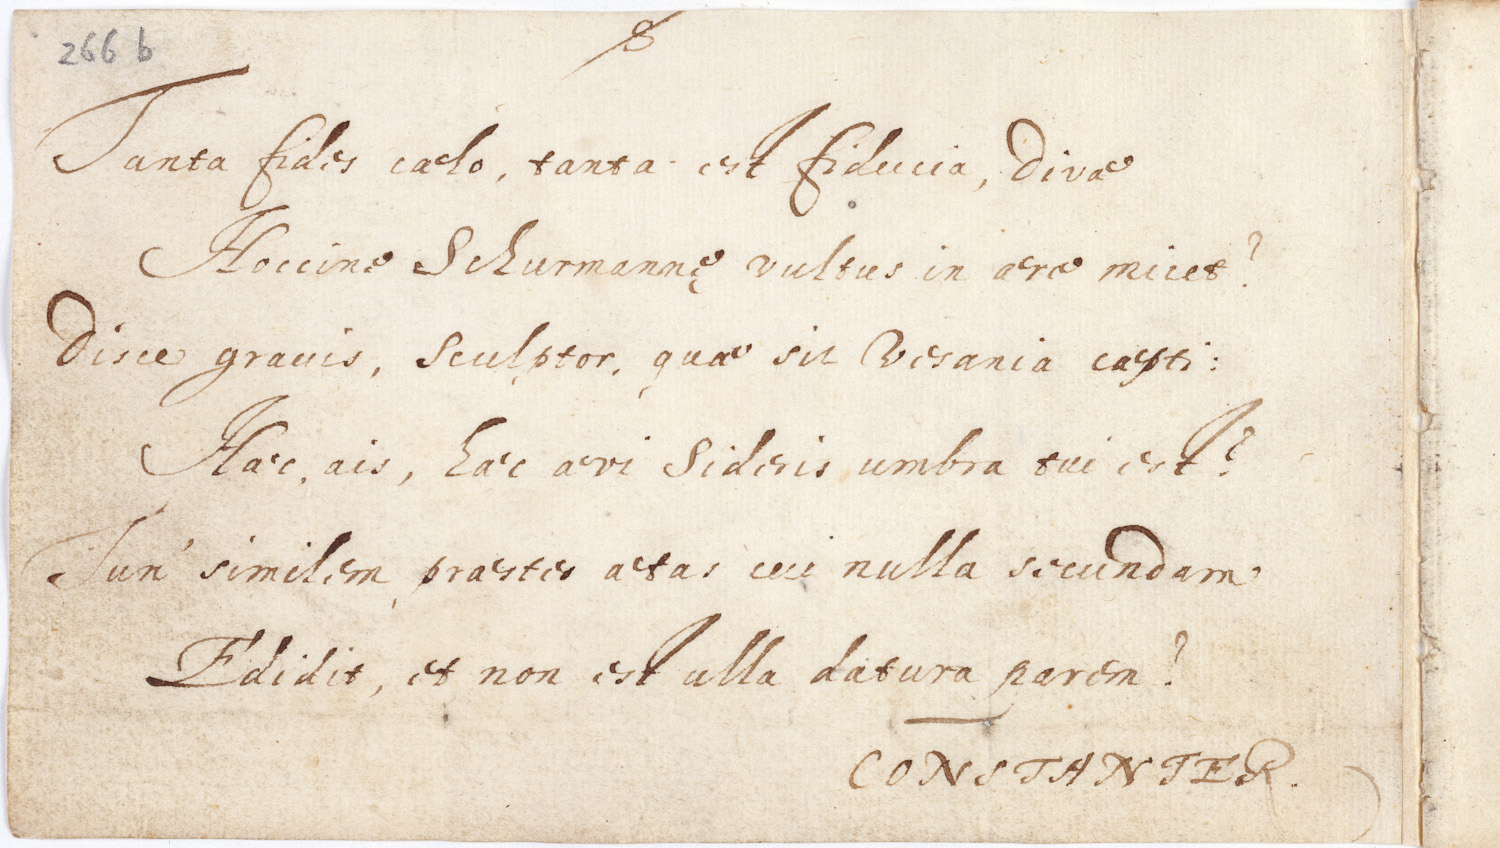 266 b
8
Tanta fides cælo, tanta est fiducia, Divæ
Hoccine Schurmannę vultus in ære micet?
Disce gravis, Sculptor, quæ sit Vesania cæpti:
Hæc, ais, hæc ævi Sideris umbra tui est?
Tun' similem præstes ætas cui nulla secundam
Edidit, et non est ulla datura parem?
CONSTANTER.